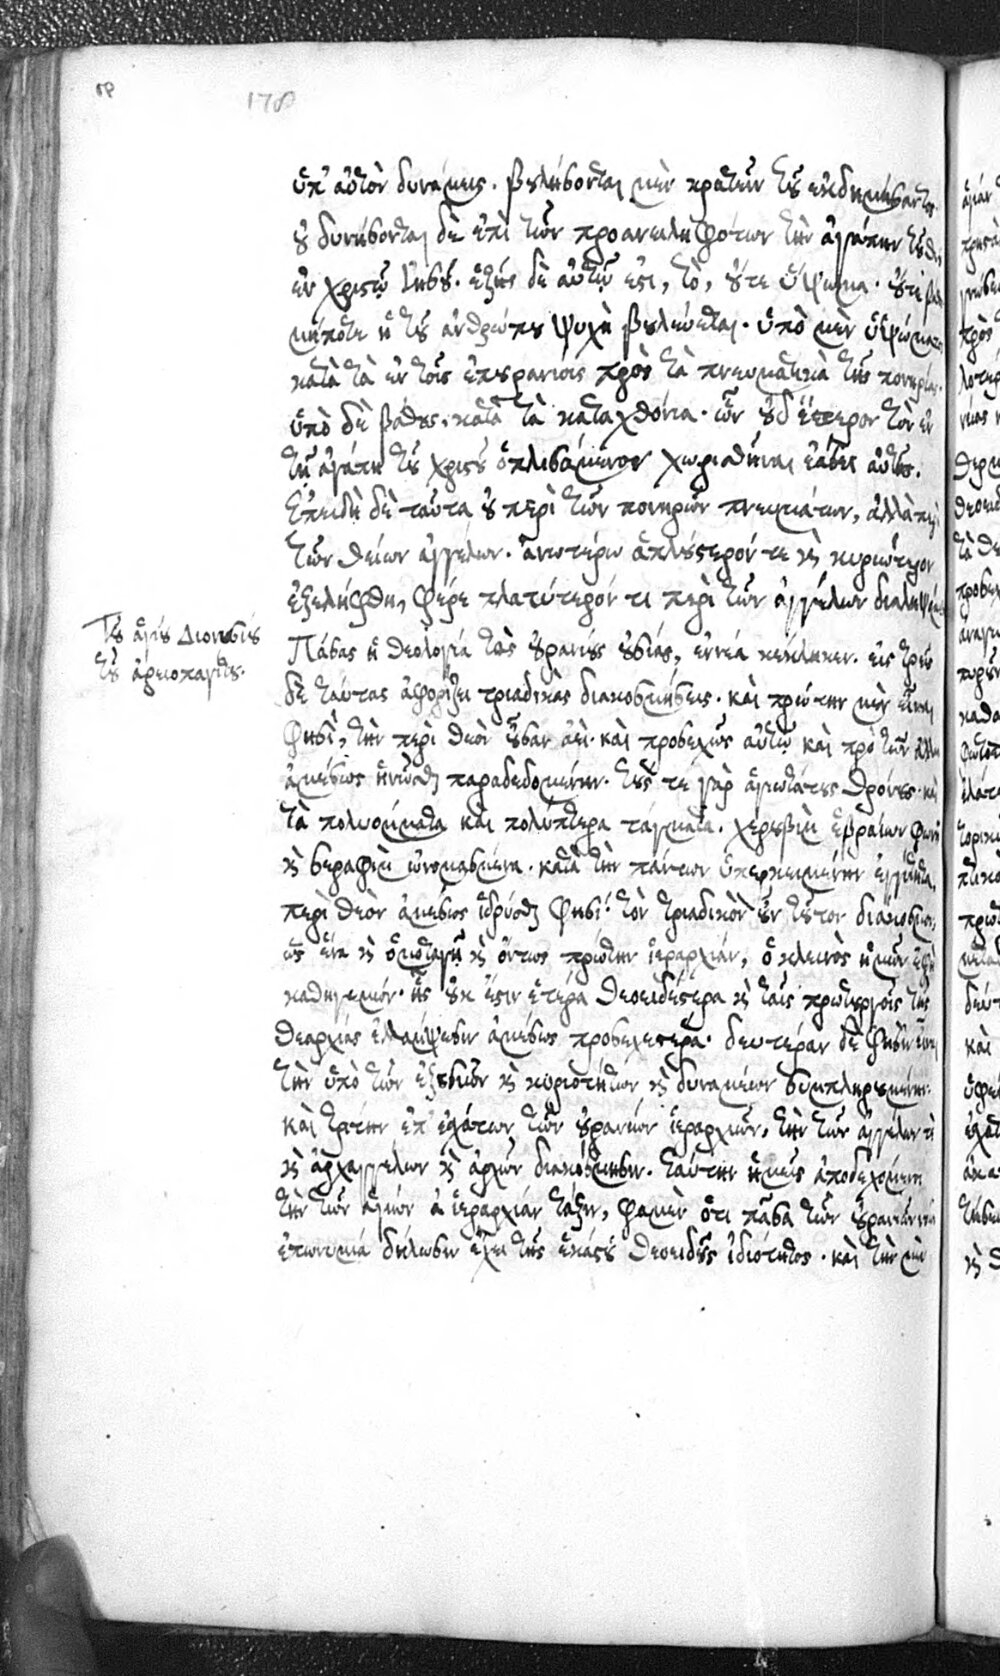 178
ὑπ' αὐτὸν δυνάμεις. βουλήσονται μὲν κρατεῖν τοῦ ἐπιδημήσαντος
οὐ δυνήσονται δὲ ἐπὶ τῶν προανειληφότων τὴν ἀγάπην τοῦ θεοῦ,
ἐν χριστῷ Ἰησοῦ. ἑξῆς δὲ αὐτῷ ἐστι, τὸ, οὔτε ὕψωμα. οὔτε βάθος
μήποτε ἡ τοῦ ἀνθρώπου ψυχὴ βουλεύεται. ὑπὸ μὲν ὑψώματος
κατὰ τὰ ἐν τοῖς ἐπουρανίοις πρὸς τὰ πνευματικὰ τῆς πονηρίας.
ὑπὸ δὲ βάθους. κατὰ τὰ καταχθόνια. ὧν οὐδέτερον τὸν ἐν
τῇ ἀγάπῃ τοῦ χριστοῦ ὁπλισάμενον χωρισθῆναι αὐτῆς.
Ἐπειδὴ δὲ ταῦτα οὐ περὶ τῶν πονηρῶν πνευμάτων, ἀλλὰ περὶ
τῶν θείων ἀγγέλων. ἀνωτέρω ἁπλούστερόν τε καὶ κυριώτερον
ἐξελήφθη, φέρε πλατύτερόν τι περὶ τῶν ἀγγέλων
Τοῦ ἁγίου Διονυσίου
τοῦ ἀρεοπαγίτου.
Πάσας ἡ θεολογία τὰς οὐρανίους οὐσίας, ἐννέα κέκληκεν. εἰς τρεῖς
δὲ ταύτας ἀφορίζει τριαδικὰς διακοσμήσεις. καὶ πρώτην μὲν εἶναι
φησὶ, τὴν περὶ θεὸν οὖσαν ἀεὶ. καὶ προσεχῶς αὐτῷ καὶ πρὸ τῶν ἄλλων
ἀμέσως ἡνῶσθαι παραδεδομένην. τοὺς τε γὰρ ἁγιωτάτους θρόνους. καὶ
τὰ πολυόμματα καὶ πολύπτερα τάγματα. χερουβὶμ ἑβραίων φωνῇ
καὶ σεραφὶμ ὠνομασμένα. κατὰ τὴν πάντων ὑπερκειμένην ἐγγύτητα,
περὶ θεὸν ἀμέσως ἱδρῦσθαι φησί. τὸν τριαδικὸν οὖν τοῦτον διάκοσμον,
ὡς ἕνα καὶ ὁμοταγῆ καὶ ὄντως πρώτην ἱεραρχίαν, ὁ κλεινὸς ἡμῶν ἔφη
καθηγεμών. ἧς οὐκ ἔστιν ἑτέρα θεοειδεστέρα καὶ ταῖς πρωτουργοῖς τῆς
θεαρχίας ἐλλάμψεσιν ἀμέσως προσεχεστέρα. δευτέραν δὲ φησὶν εἶναι
τὴν ὑπὸ τῶν ἐξουσιῶν καὶ κυριοτήτων καὶ δυνάμεων συμπληρουμένην.
καὶ τρίτην ἐπ' ἐσχάτων τῶν οὐρανίων ἱεραρχιῶν, τὴν τῶν ἀγγέλων τὲ
καὶ ἀρχαγγέλων καὶ ἀρχῶν διακόσμησιν. ταύτην ἡμεῖς ἀποδεχόμενοι
τὴν τῶν ἁγίων ἱεραρχιῶν τάξιν, φαμὲν ὅτι πᾶσα τῶν οὐρανίων νοῶν
ἐπωνυμία δήλωσιν ἔχει τῆς ἑκάστου θεοειδοῦς ἰδιότητος. καὶ τὴν μὲν